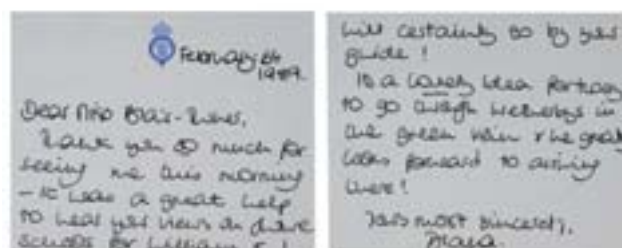 February 6th
1989.
Dear Mrs Blair-
Thank you so much for
seeing me this morning
- it was a great help
to hear your views on
schools for William & I
will certainly go by your
guide!
Is a lovely idea
to go through Wetherbys in
the green & he greatly
looks forward to
there!
Yours most sincerely,
Diana